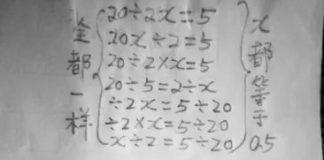 全都一样
20÷2x=5
20x÷2=5
20÷2×x=5
20÷5=2÷x
÷2x=5÷20
÷2×x=5÷20
x÷2=5÷20
x都等于0.5